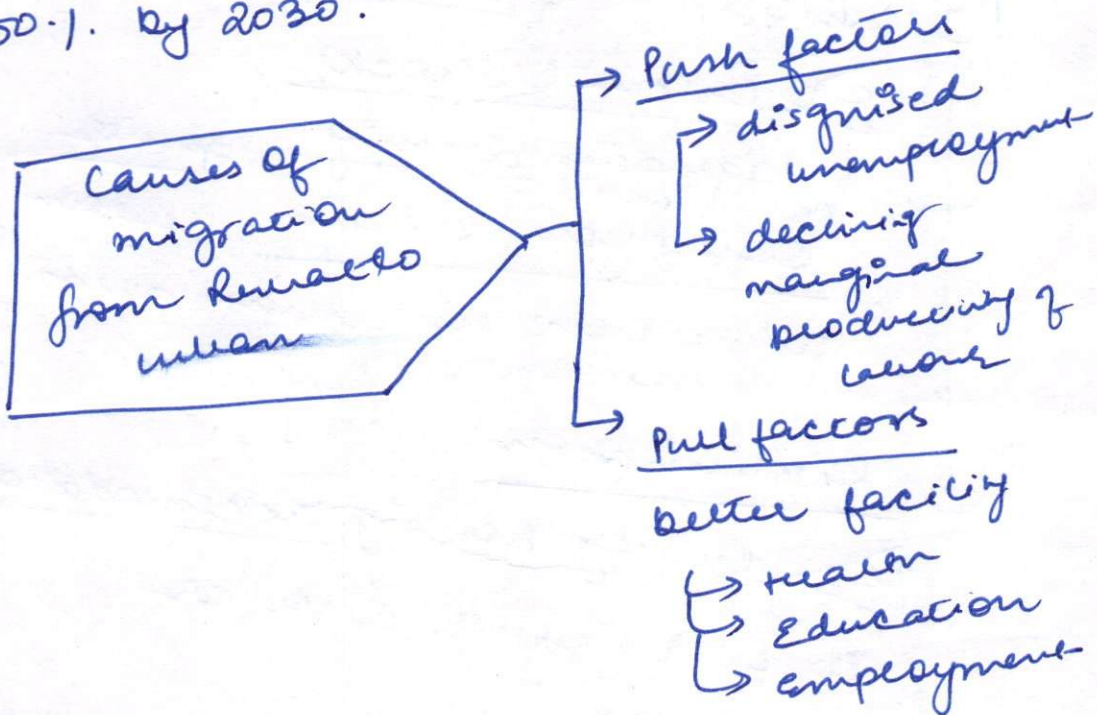 50%. by 2030.
Causes of
migration
from Rural to
urban
Push factors
disguised
unemployment
declining
marginal
productivity of
labour
Pull factors
better facility
Health
Education
employment